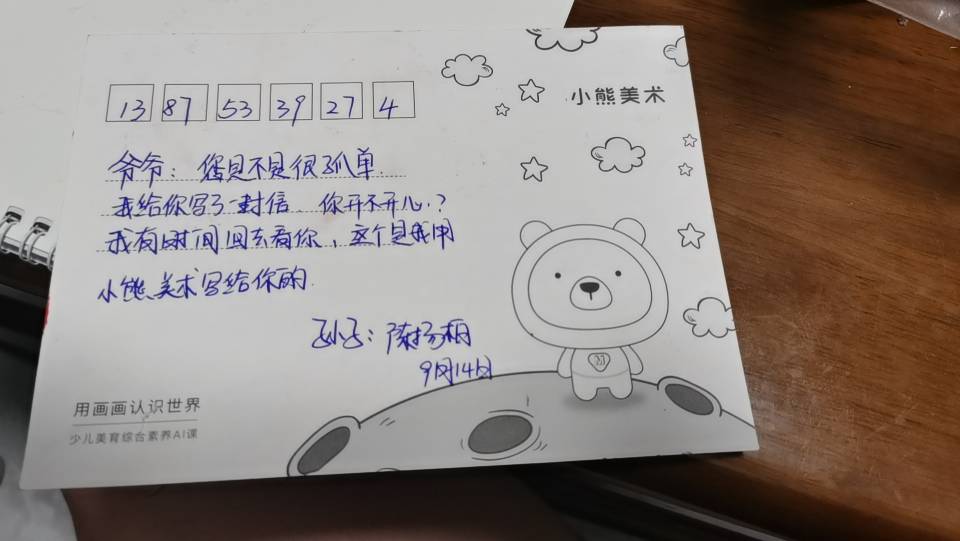 小熊美术
13 87 53 39 27 4
爷爷：您是不是很孤单.
我给你写了一封信、你开不开心.?
我有时间回去看你，这个是我用
小熊、美术写给你的.
孙子：陈扬桐
9月14日
用画画认识世界
少儿美育综合素养AI课